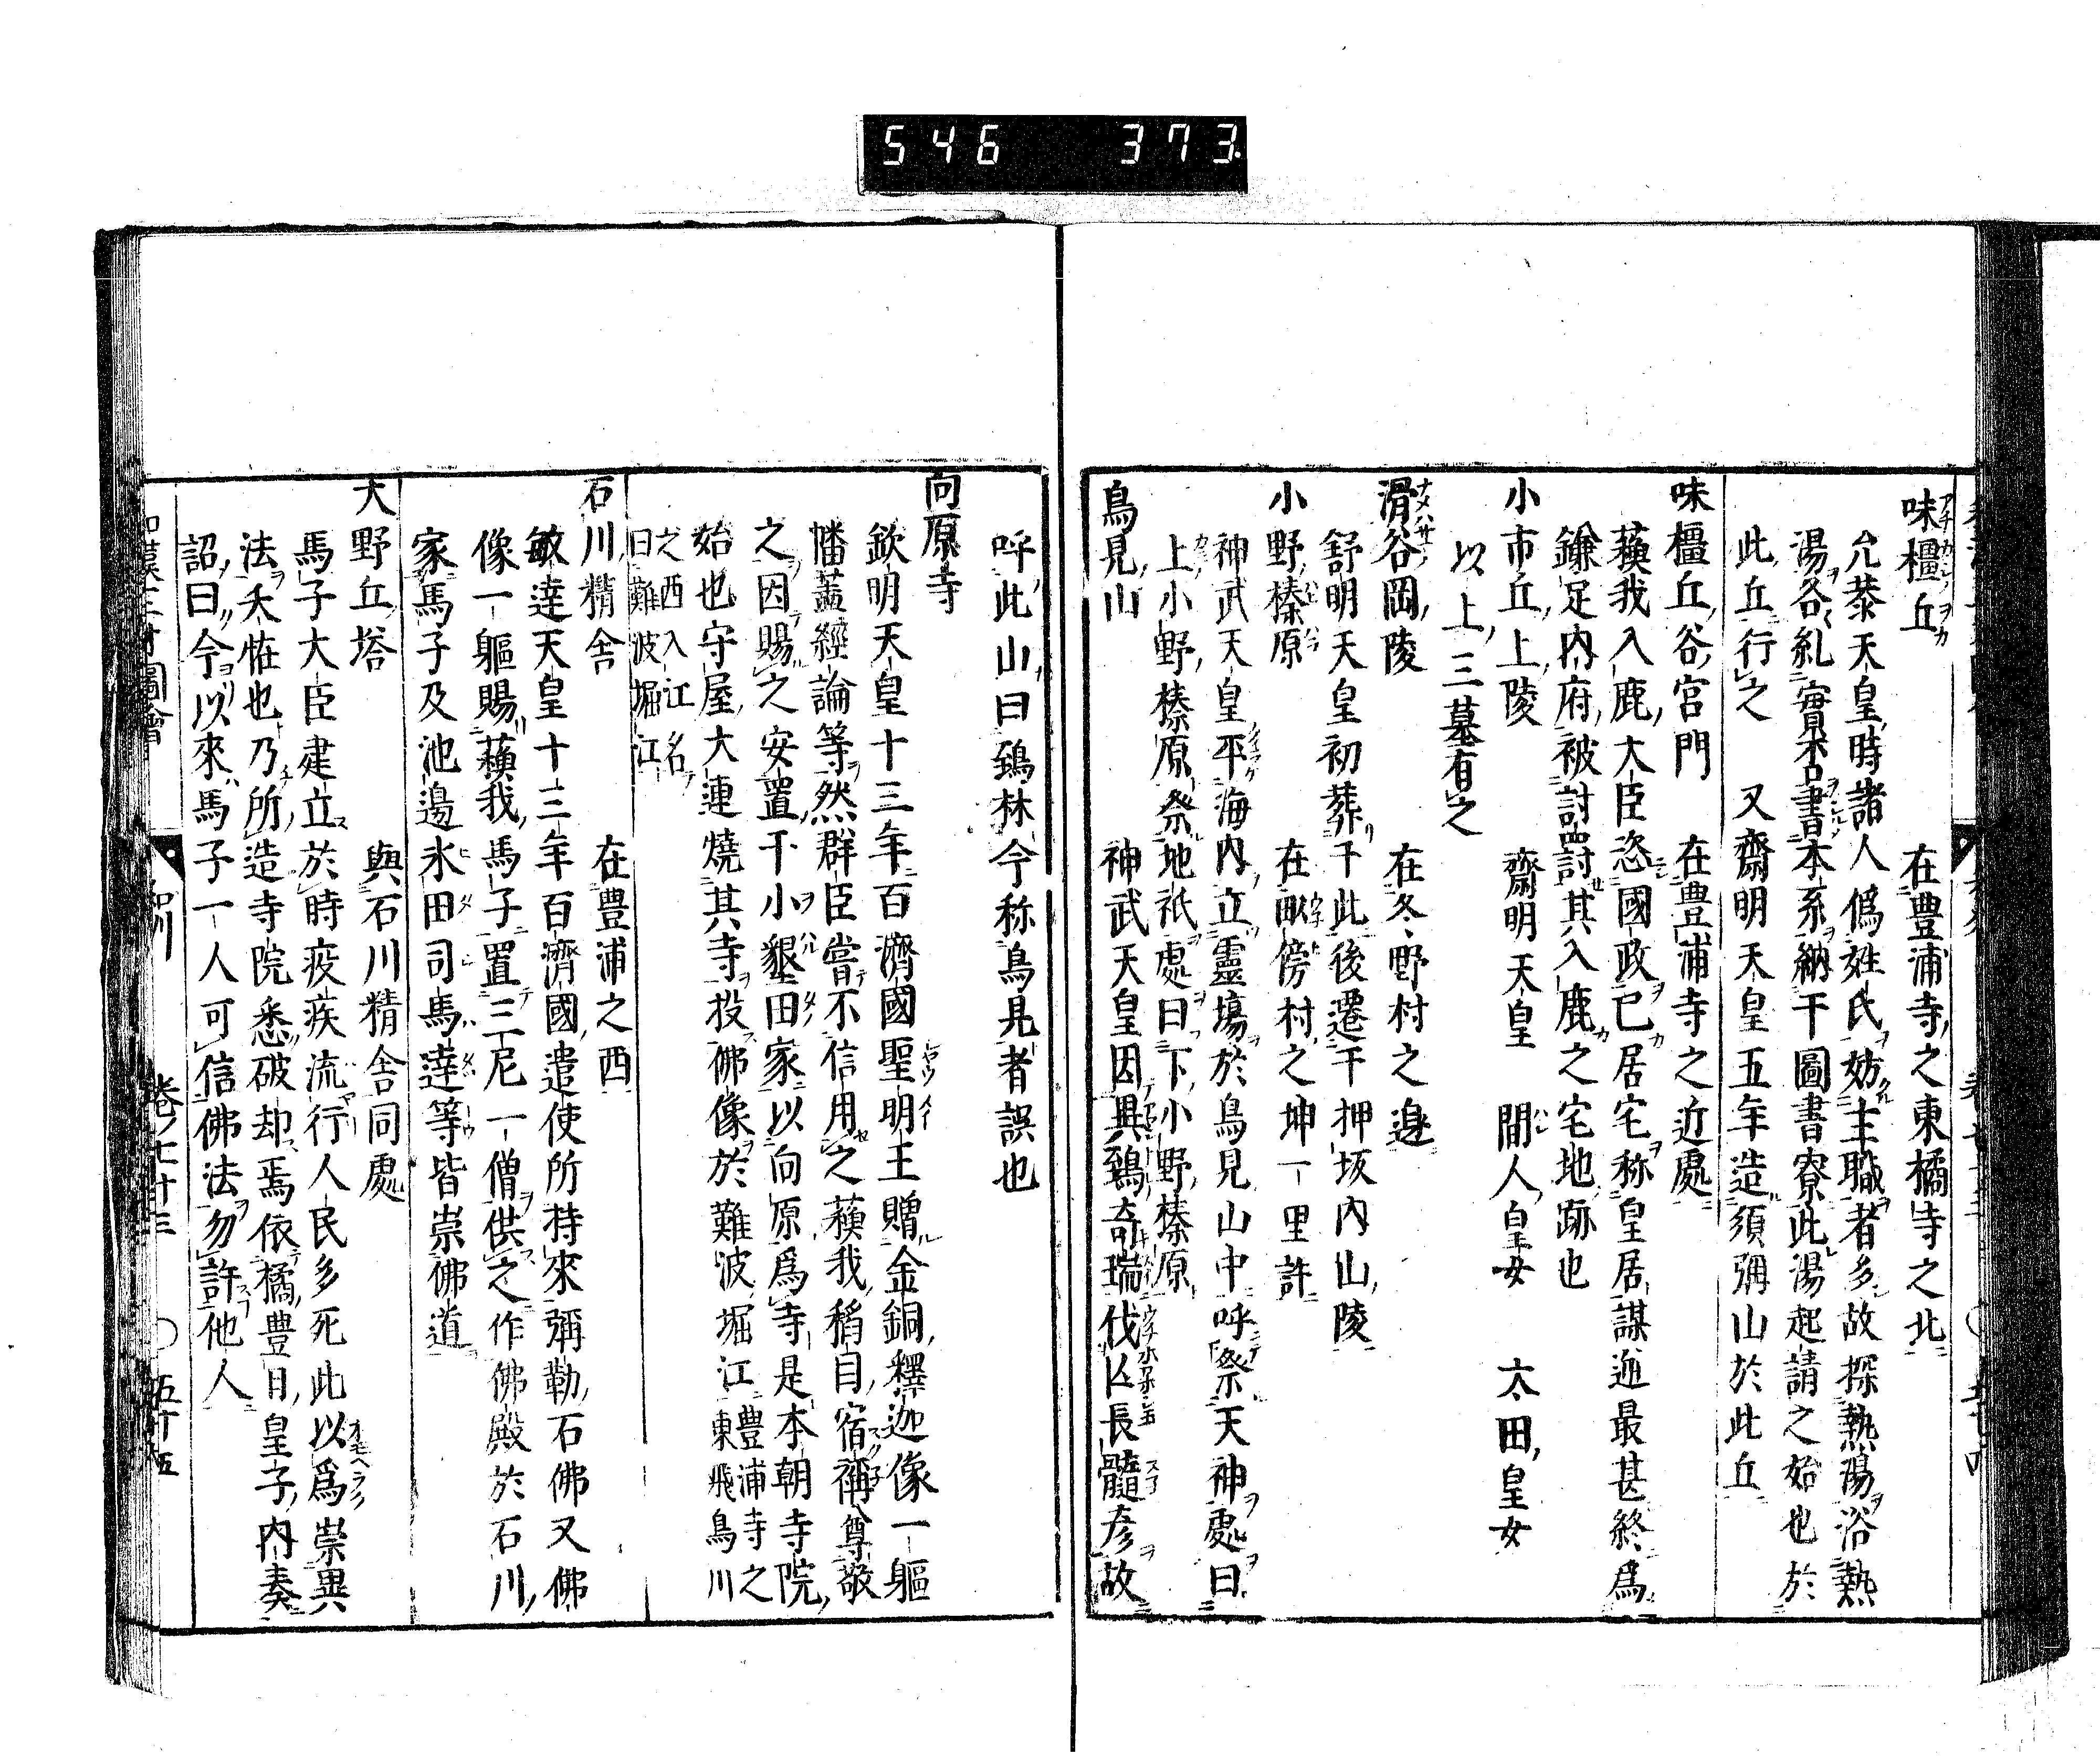 546 373
味橿丘 在豊浦寺之東橘寺之北
允恭天皇時諸人偽姓氏妨主職者多故探熱湯浴熱
湯各糺實否書本系納于圖書寮此湯起請之始也於
此丘行之 又齋明天皇五年造須彌山於此丘
味橿丘谷宮門 在豊浦寺之近處
蘓我入鹿大臣恣國政已居宅称皇居謀逆最甚終爲
鎌足内府被討罸討其入鹿之宅地跡也
小市丘上陵 齋明天皇 間人皇女 太田皇女
以上三墓有之
滑谷岡陵 在冬野村之邉
舒明天皇初葬于此後遷于押坂内山陵
小野榛原 在畝傍村之坤一里許
神武天皇平海内立靈塲於鳥見山中呼祭天神處曰
上小野榛原祭地祇處曰下小野榛原
鳥見山 神武天皇因異鵄奇瑞伐凶長髓彦故
呼此山曰鵄林今称鳥見者誤也
向原寺
欽明天皇十三年百濟國聖明王贈金銅釋迦像一軀
幡蓋經論等然群臣嘗不信用之蘓我稻目宿祢尊敬
之因賜之安置于小墾田家以向原爲寺是本朝寺院
始也守屋大連燒其寺投佛像於難波堀江豊浦寺之
東飛鳥川
之西入江名
曰難波堀江
石川精舎 在豊浦之西
敏達天皇十三年百濟國遣使所持來彌勒石佛又佛
像一軀賜蘓我馬子置三尼一僧供之作佛殿於石川
家馬子及池邊氷田司馬達等皆崇佛道
大野丘塔 與石川精舎同處
馬子大臣建立於時疫疾流行人民多死此以爲崇異
法夭恠也乃所造寺院悉破却焉依橘豊日皇子内奏
詔曰今以來馬子一人可信佛法勿許他人
和漢三才圖會 和州 卷之七十三 ○五十五